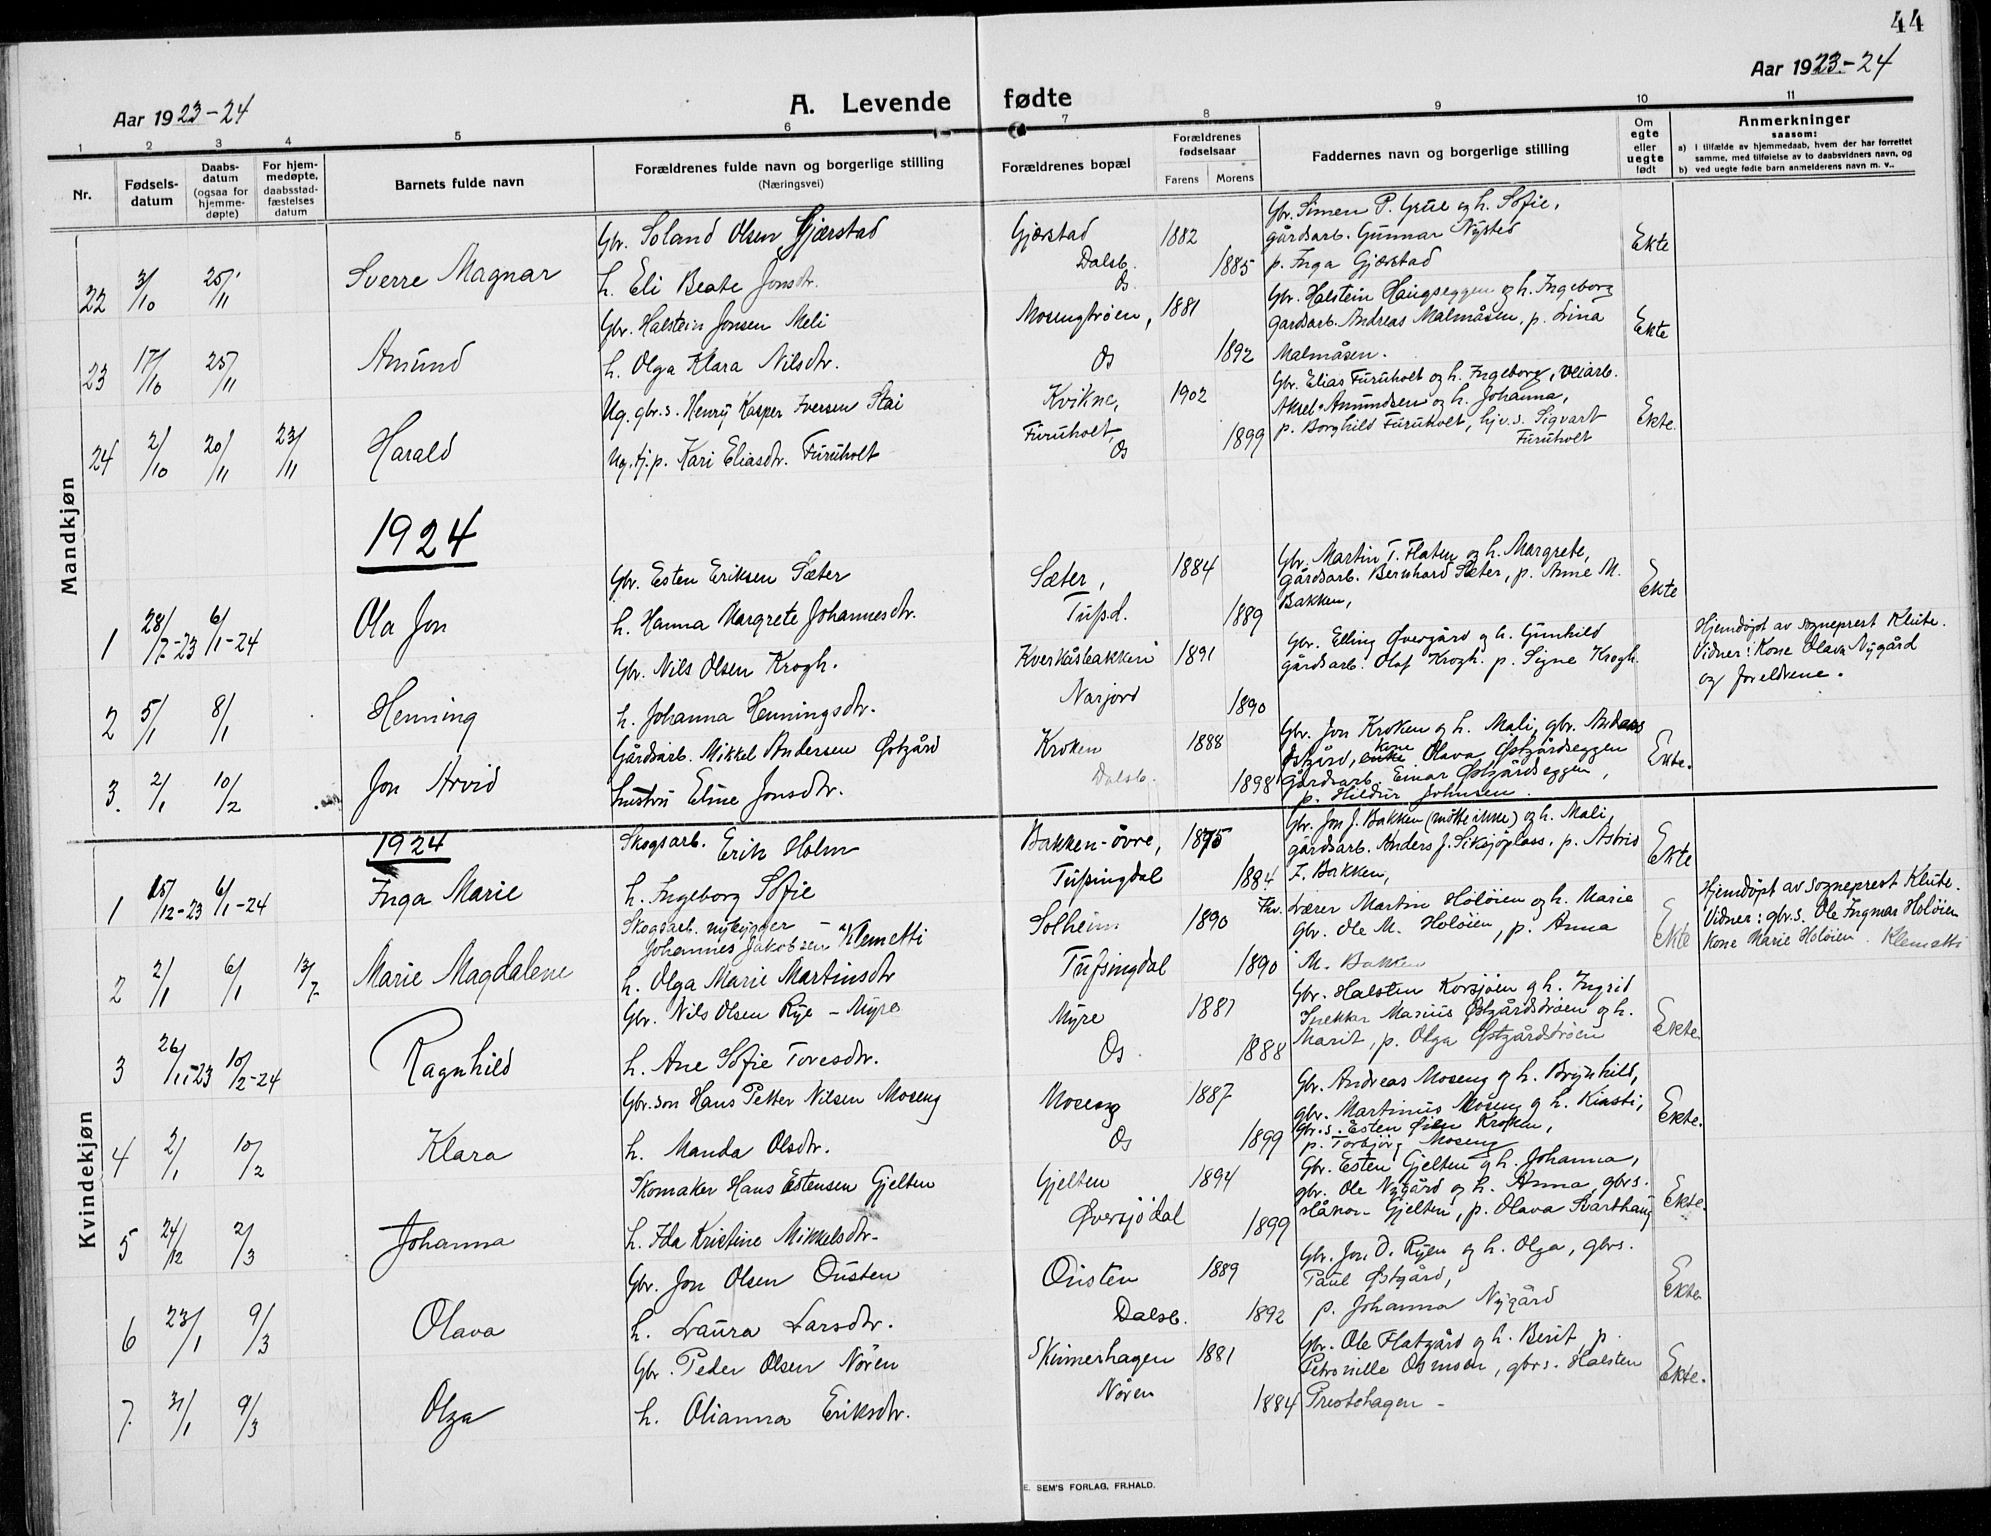 44
Aar 1923-24
A. Levende fødte
Aar 1923-24
1 2 3 4 5 6 7 8 9 10 11
Nr.
Fødsels-
datum
Daabs-
datum
(ogsaa for
hjemme-
døpte)
For hjem-
medøpte,
daabsstad-
fæstelses
datum
Barnets fulde navn
Forældrenes fulde navn og borgerlige stilling
(Næringsvei)
Forældrenes bopæl
Forældrenes
fødselsaar
Farens Morens
Faddernes navn og borgerlige stilling
Om
egte
eller
uegte
født
Anmerkninger
saasom:
a) I tilfælde av hjemmedaab, hvem der har forrettet
samme, med tilføielse av to daabsvidners navn, og
b) ved uegte fødte barn anmelderens navn m. v..
Mandkjøn
22 3/10 25/11 Sverre Magnar
Gbr. Soland Olsen Gjærstad
h. Eli Beate Jonsdtr.
Gjærstad
Dalsb.
Os
1882
1885
Gbr. Simen P. Grue og h. Sofie,
gårdsarb. Gunnar Nysted
p. Inga Gjærstad
Ekte
23 17/10 25/11 Amund
Gbr. Halstein Jonsen Meli
h. Olga Klara Nilsdtr.
Mosengtrøen,
Os
1881
1892
Gbr. Halstein Haugseggen og h. Ingeborg
gardsarb. Andreas Malmåsen, p. Lina
Malmåsen.
Ekte
24 2/10 20/11 23/11 Harald
Ug. gbr. s. Henry Kasper Iversen Stai
Ug. tj. p. Kari Eliasdtr. Furuholt
Kvikne,
Furuholt,
Os
1902
1899
Gbr. Elias Furuholt og h. Ingeborg, veiarb.
Aksel Amundsen og h. Johanna,
p. Borghild Furuholt, hjv. s. Sigvart
Furuholt
Ekte.
1924
1 28/12-23 6/1-24 Ola Jon
Gbr. Esten Eriksen Sæter
h. Hanna Margrete Johannesdtr.
Sæter,
Tufsd.
1884
1889
Gbr. Martin T. Flaten og h. Margrete,
gårdsarb. Bernhard Sæter, p. Anne M.
Bakken,
Ekte
2 5/1 8/1 Henning
Gbr. Nils Olsen Krogh.
h. Johanna Henningsdtr.
Kverkåsbakken
Narjord
1891
1890
Gbr. Elling Øvergård og h. Gunhild
gårdsarb. Olaf Krogh. p. Signe Krogh.
Hjemdøpt av sogneprest Klute.
Vidner: Kone Olava Nygård
og foreldrene.
3. 2/1 10/2 Jon Arvid
Gårdsarb. Mikkel Andersen Østgård
hustru Eline Jonsdtr.
Kroken
Dalsb.
1888
1898
Gbr. Jon Kroken og h. Mali, gbr. Anders
Østgård, enke kone Olava Østgårdseggen
gårdsarb. Einar Østgårdseggen,
p. Hildur Johnsen.
Ekte.
Kvindekjøn
1924
1 15/12-23 6/1-24 Inga Marie
Skogsarb. Erik Holm
h. Ingeborg Sofie
Bakken-øvre,
Tufsingdal
1875
1884
Gbr. Jon J. Bakken (møtte ikke) og h. Mali,
gårdsarb. Anders J. Siksjöplass. p. Astrid
I. Bakken,
Ekte
2 2/1 6/1 13/7 Marie Magdalene
Skogsarb. nybygger -
Johannes Jakobsen Klemetti
h. Olga Marie Martinsdtr
Solheim
Tufsingdal
1890
1890
Fhv. Lærer Martin Holøien og h. Marie
Gbr. Ole M. Holøien, p. Anna
M. Bakken
Ekte
Hjemdøpt av sogneprest Klute.
Vidner: gbr.s. Ole Ingmar Holøien
Kone Marie Holøien. Klemetti
3 26/11-23 10/2-24 Ragnhild
Gbr. Nils Olsen Rye - Myre
h. Ane Sofie Toresdtr.
Myre
Os.
1881
1888
Gbr. Halsten Korsjøen og h. Ingrid
Snekker Marius Østgårdstrøen og h.
Marit, p. Olga Østgårdtrøen
Ekte.
4 2/1 10/2 Klara
Gbr. søn Hans Petter Nilsen Moseng
h. Manda Olsdtr.
Moseng
Os
1887
1899
Gbr. Andreas Moseng og h. Brynhild,
gbr. Martinus Moseng og h. Kirsti,
Gbr. s. Esten Kroken,
p. Torbjørg Moseng
Ekte.
5 24/12 2/3 Johanna
Skomaker Hans Estensen Gjelten
h. Ida Kristine Mikkelsdtr.
Gjelten
Øversjødal
1894
1899
Gbr. Esten Gjelten og h. Johanna,
gbr. Ole Nygård og h. Anna, gbr s.
Håkon Gjelten, p. Olava Svarthaug
Ekte.
6 23/1 9/3 Olava
Gbr. Jon Olsen Ousten
h. Laura Larsdtr.
Ousten
Dalsb.
1889
1892
Gbr. Jon D. Ryen og h. Olga, gbrs.
Paul Østgård,
p. Johanna Nygård
Ekte
7. 31/1 9/3 Olga
Gbr. Peder Olsen Nøren
h. Olianna Eriksdtr.
Skinnerhagen
Nøren
1881
1884
Gbr. Ole Flatgård og h. Berit, p.
Petronille Osmoen, gbrs. Halsten
Prestehagen -
Ekte.
E. SEM'S FORLAG, FR.HALD.